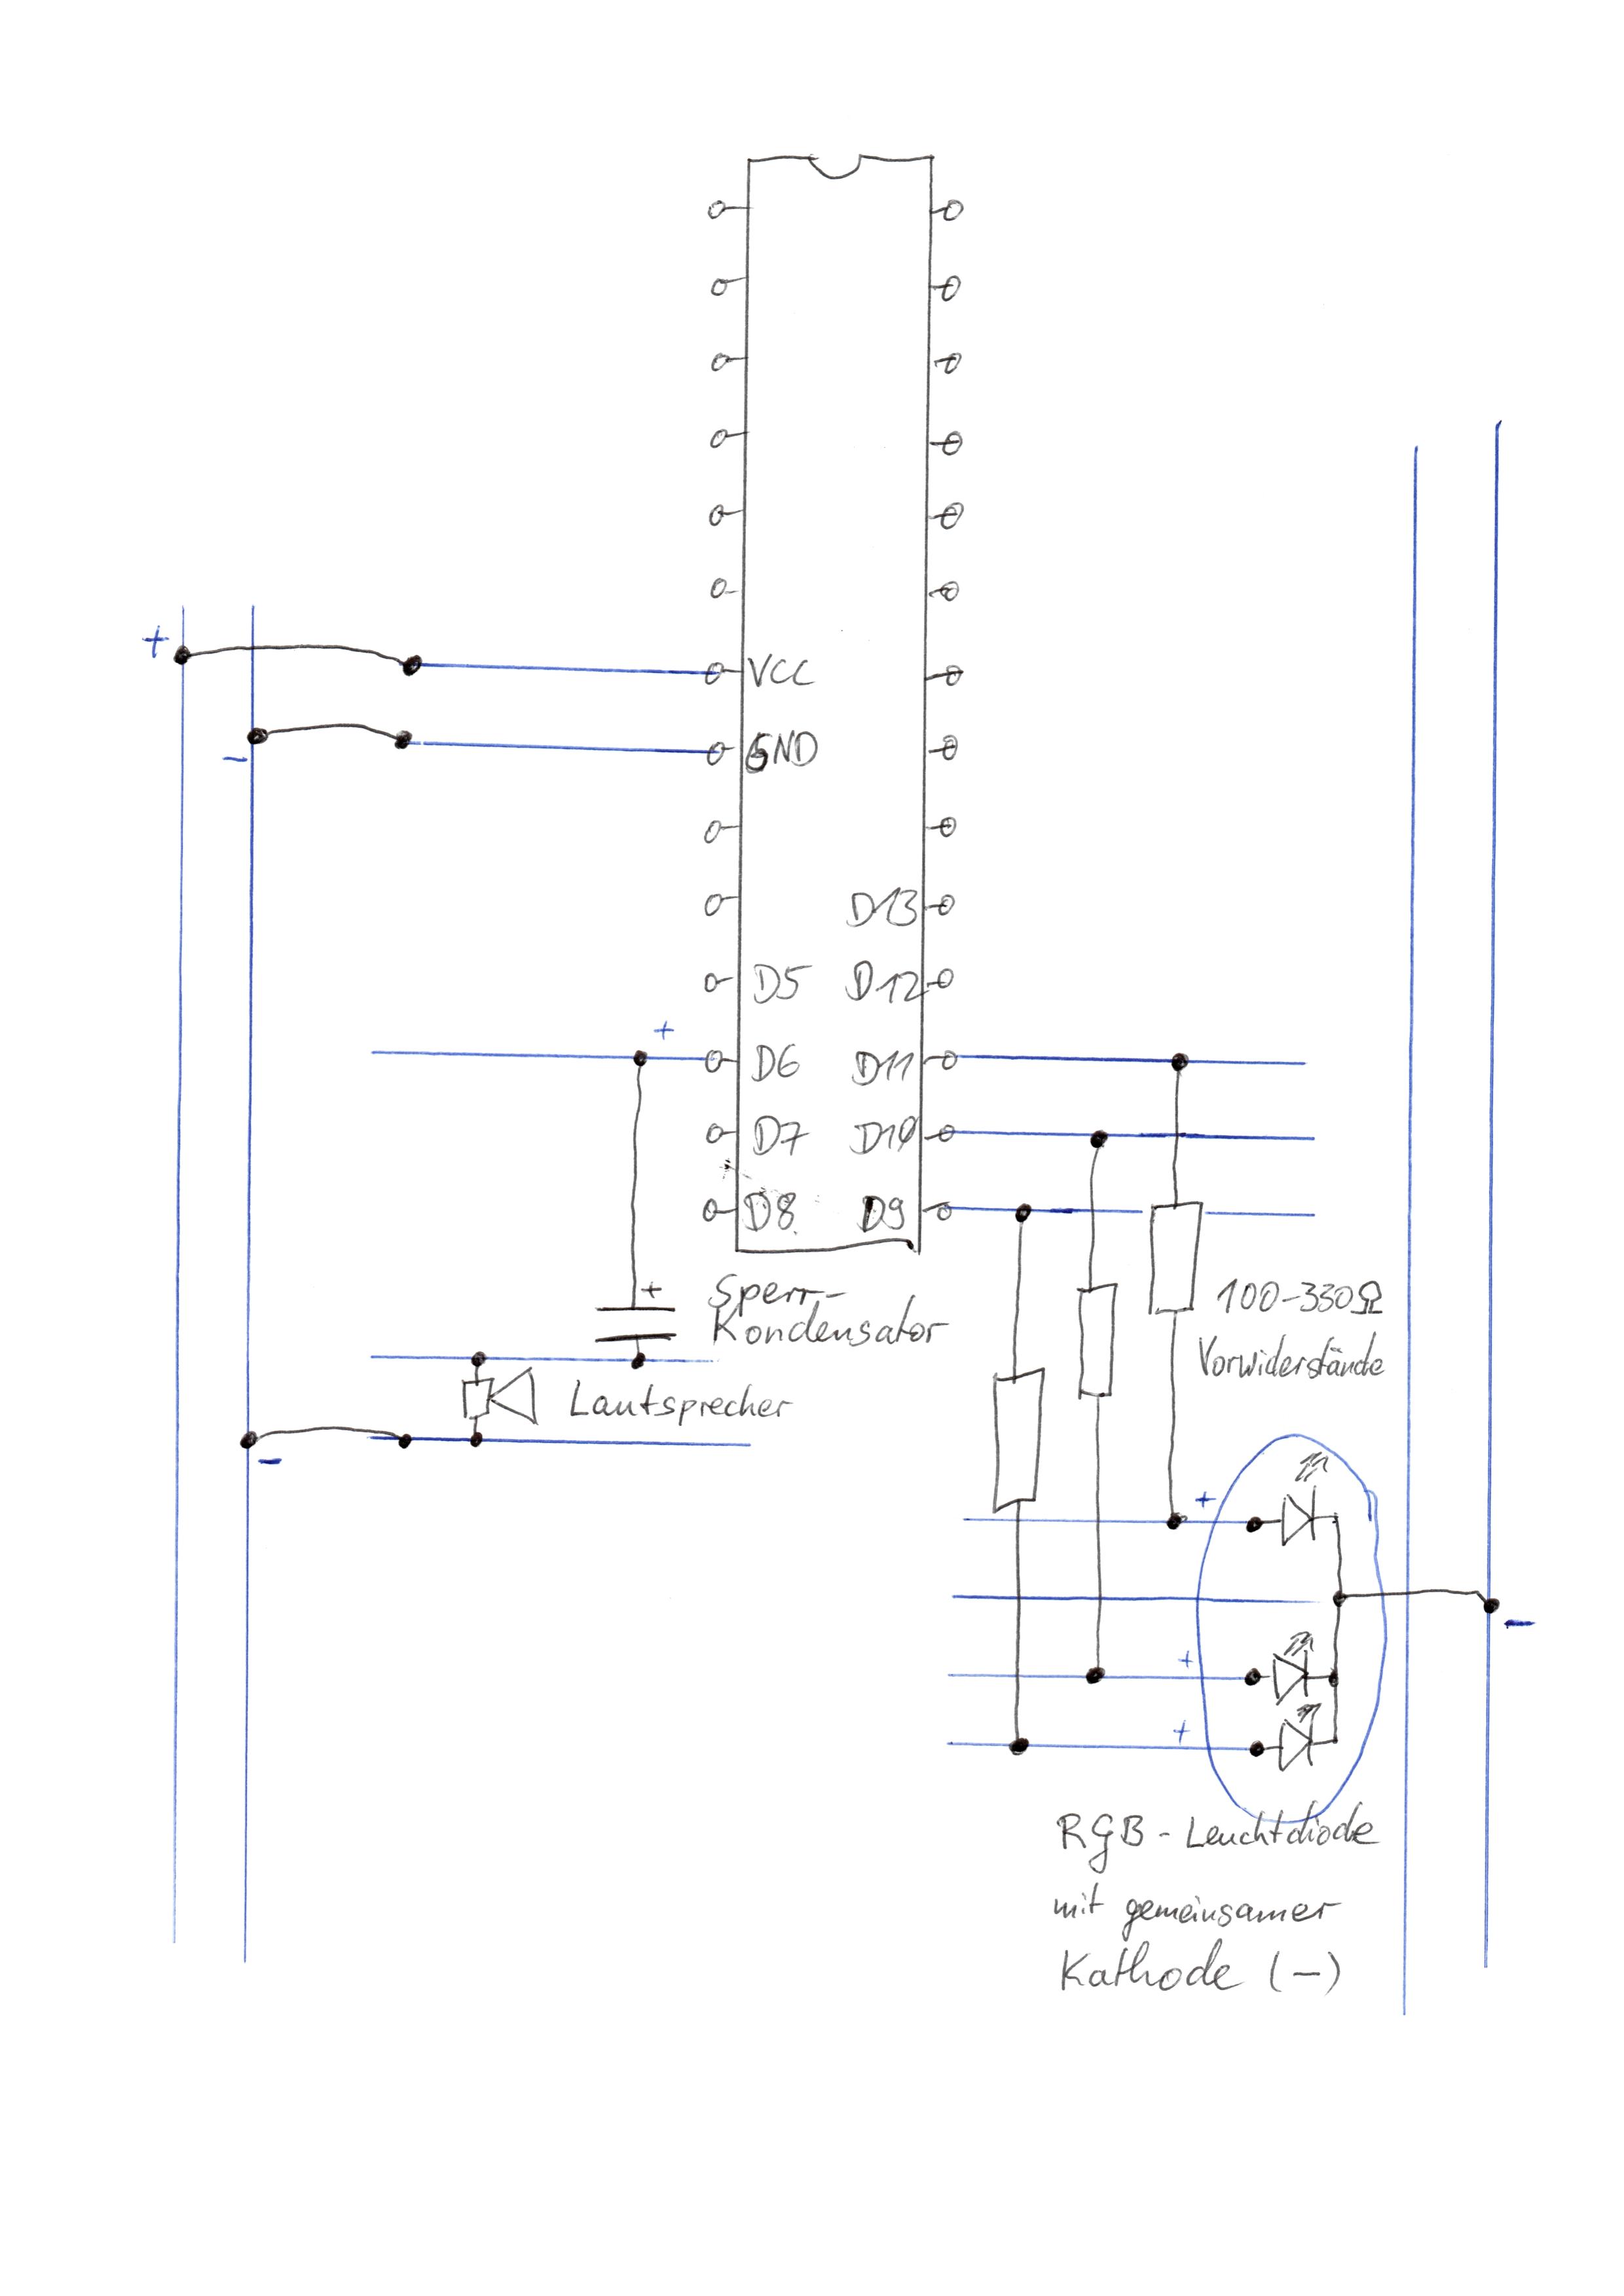 +
VCC
-
GND
D13
D5 D12
+
D6 D11
D7 D10
D8 D9
+
Sperr-
Kondensator
100-330Ω
Vorwiderstände
Lautsprecher
-
+
-
+
+
RGB - Leuchtdiode
mit gemeinsamer
Kathode (-)